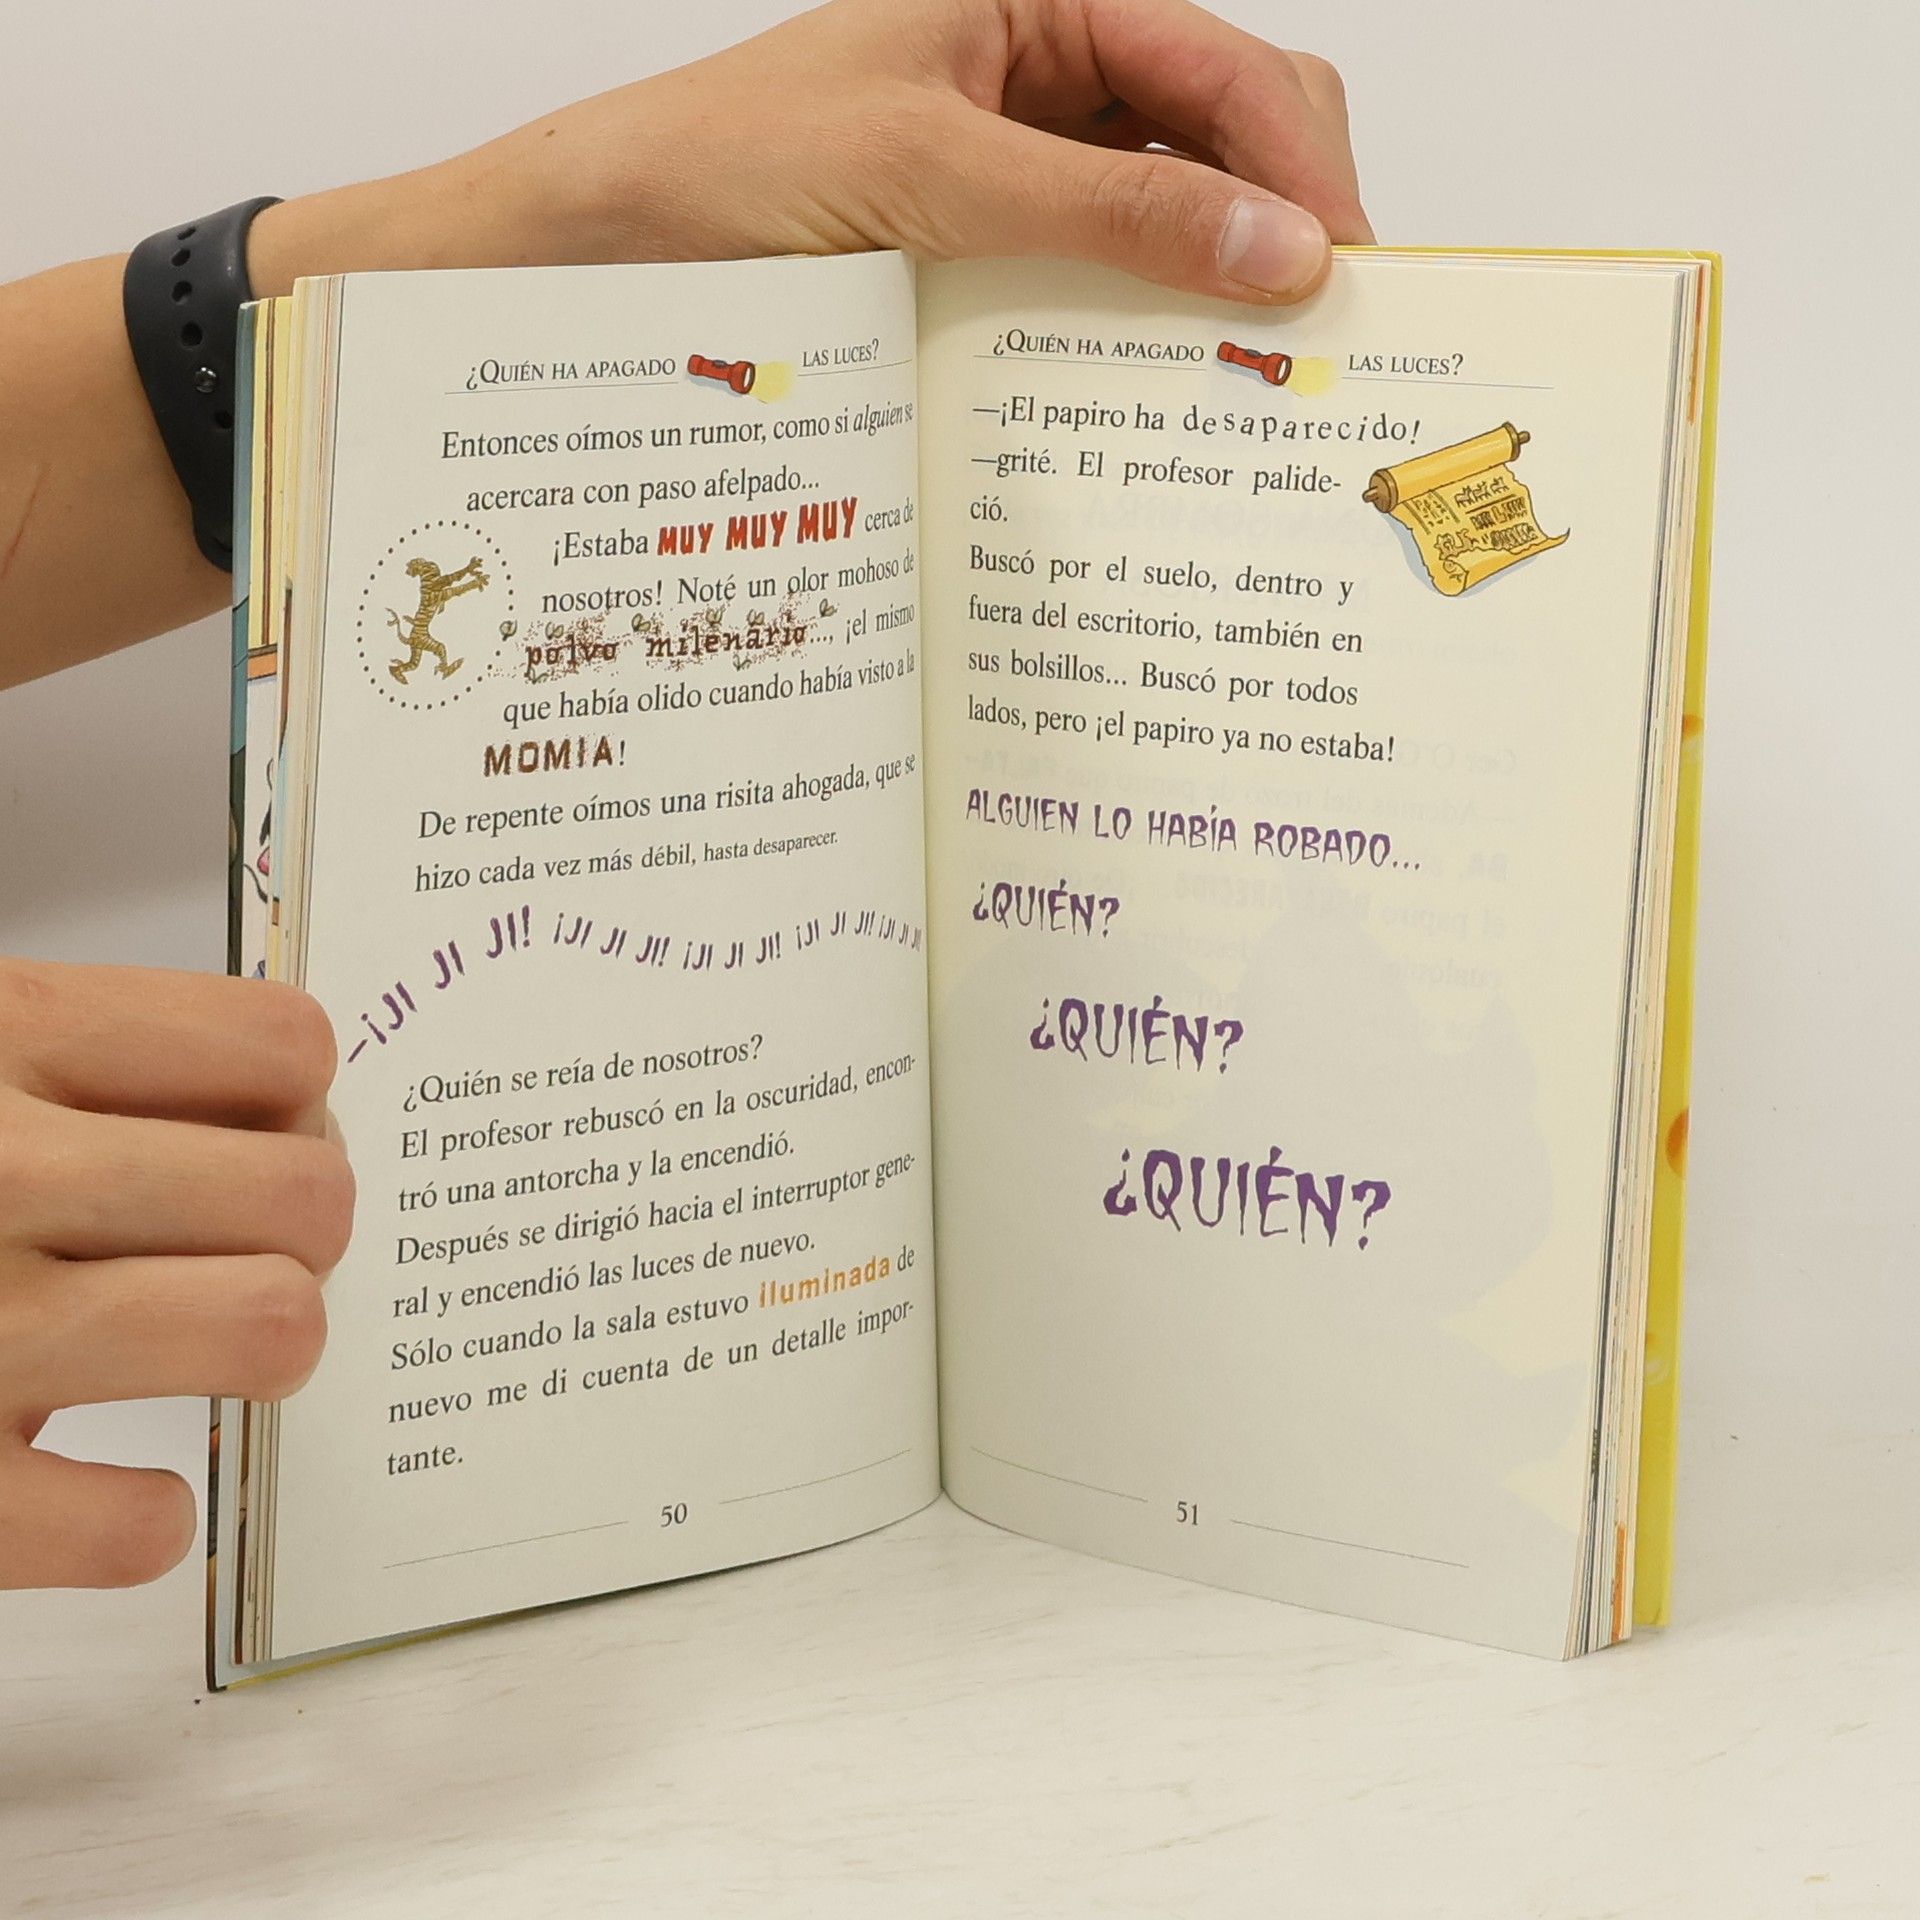 ¿QUIÉN HA APAGADO LAS LUCES?
Entonces oímos un rumor, como si alguien se
acercara con paso afelpado...
¡Estaba MUY MUY MUY cerca de
nosotros! Noté un olor mohoso de
polvo milenario..., ¡el mismo
que había olido cuando había visto a la
MOMIA!
De repente oímos una risita ahogada, que se
hizo cada vez más débil, hasta desaparecer.
—¡JI JI JI! ¡JI JI JI! ¡JI JI JI! ¡JI JI JI! ¡JI JI JI!
¿Quién se reía de nosotros?
El profesor rebuscó en la oscuridad, encon-
tró una antorcha y la encendió.
Después se dirigió hacia el interruptor gene-
ral y encendió las luces de nuevo.
Sólo cuando la sala estuvo iluminada de
nuevo me di cuenta de un detalle impor-
tante.
50
¿QUIÉN HA APAGADO LAS LUCES?
—¡El papiro ha desaparecido!
—grité. El profesor palide-
ció.
Buscó por el suelo, dentro y
fuera del escritorio, también en
sus bolsillos... Buscó por todos
lados, pero ¡el papiro ya no estaba!
ALGUIEN LO HABÍA ROBADO...
¿QUIÉN?
¿QUIÉN?
¿QUIÉN?
51